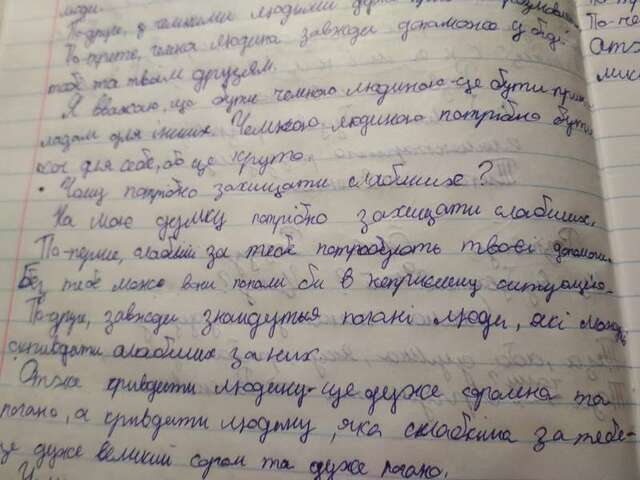 люди.
По-друге, з чемними людьми дуже
По-третє, чемна людина завжди допоможе у біді
тобі та твоїм друзям.
Я вважаю, що бути чемною людиною-це бути прик-
ладом для інших. Чемною людиною потрібно бути
хоч для себе, бо це круто.
• Чому потрібно захищати слабших?
На мою думку потрібно захищати слабших.
По-перше, слабші за тебе потребують твоєї допомоги.
Без тебе може вони попали би в неприємну ситуацію.
По-друге, завжди знайдуться погані люди, які можуть
скривдити слабших за них.
Отже кривдити людину-це дуже
та
погано, а кривдити людину, яка слабкіша за тебе-
це дуже великий сором та дуже погано.
По-
По-пе
Отж